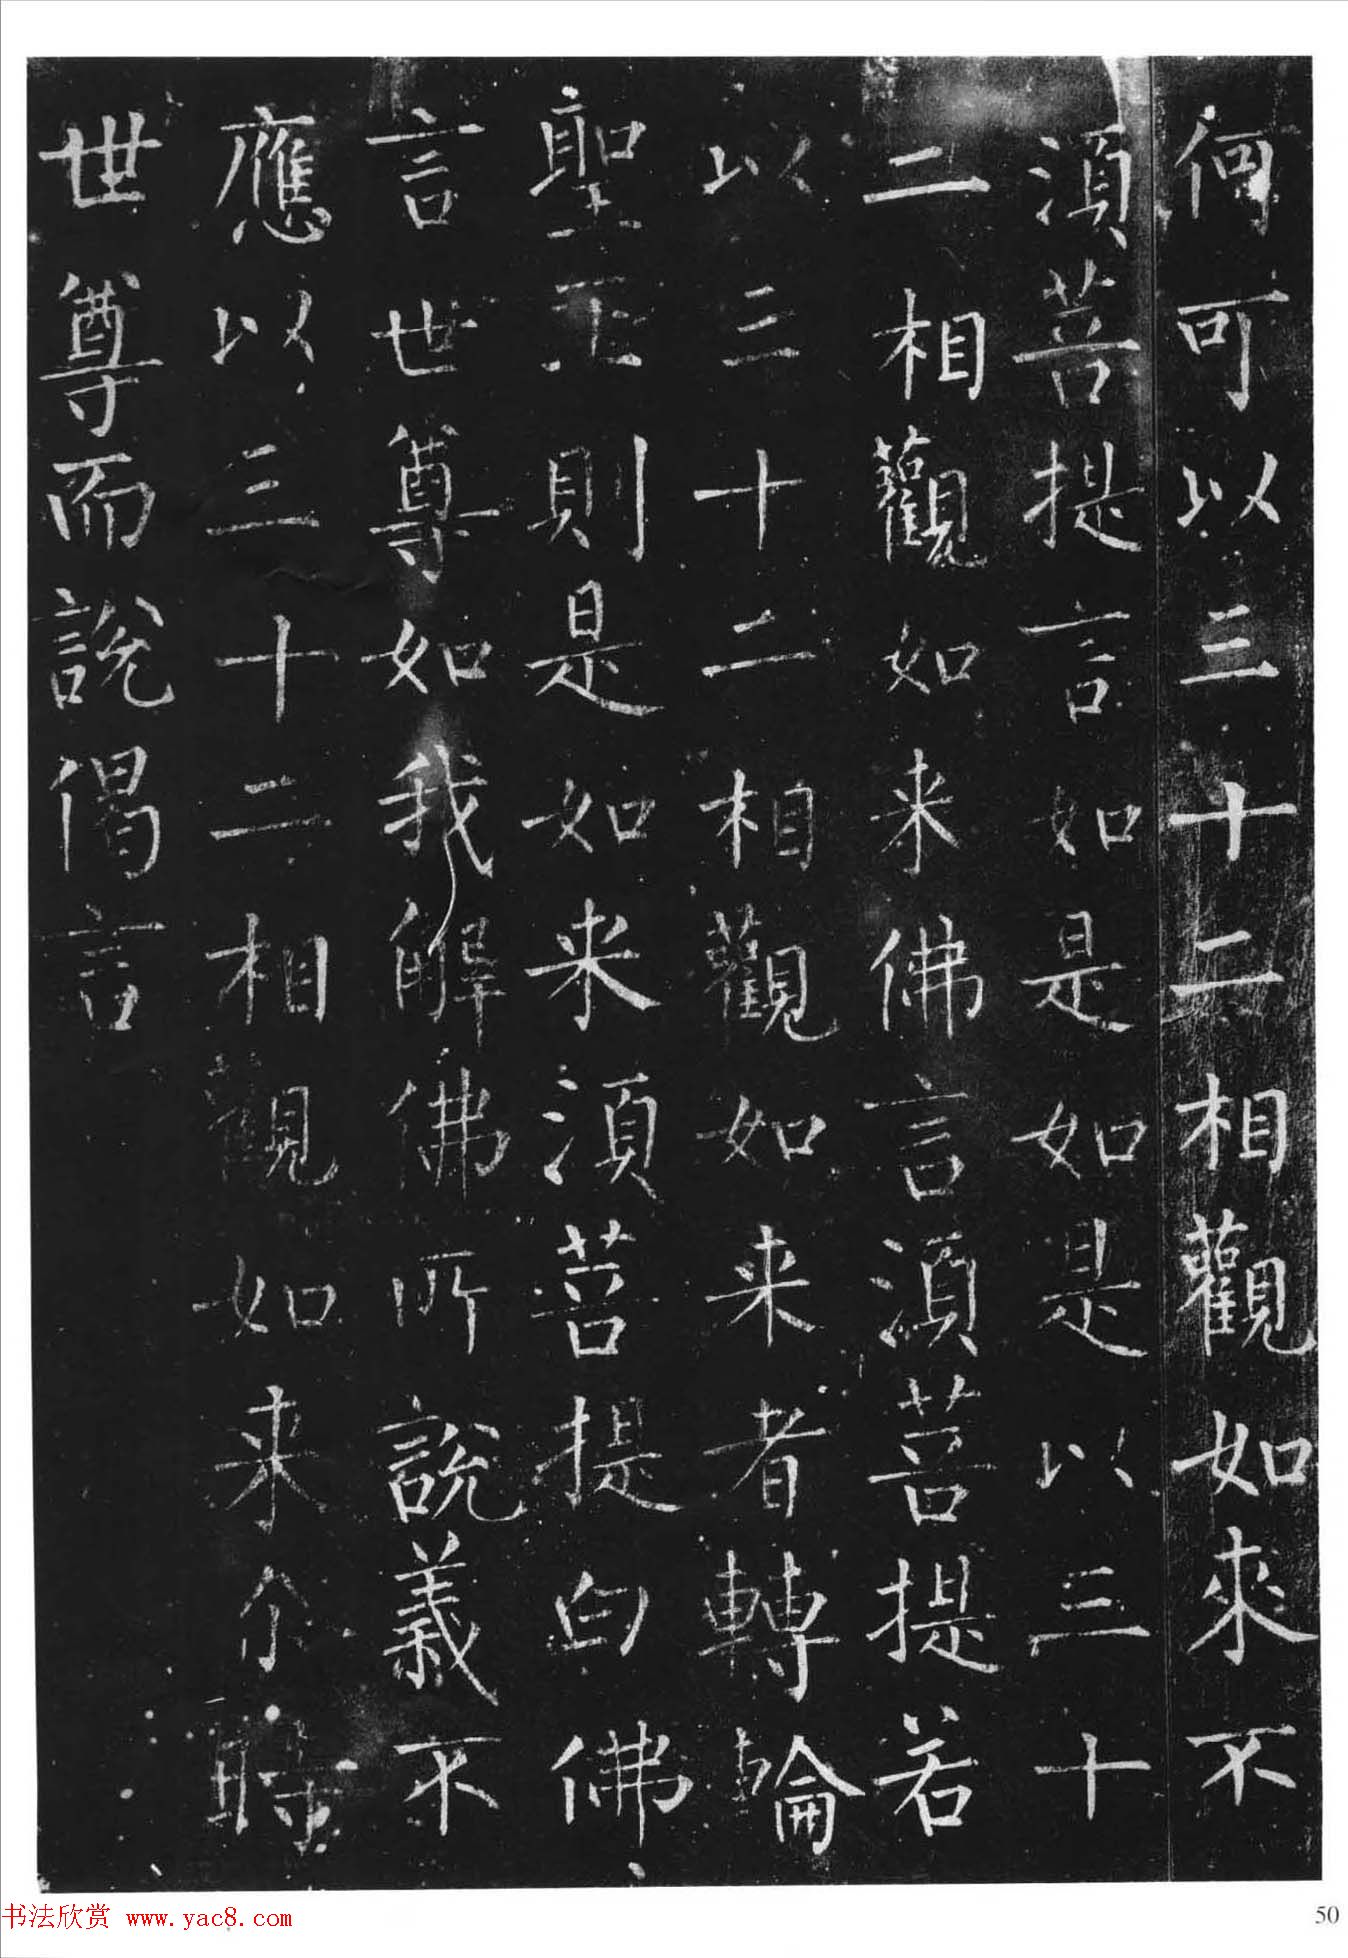 何可以三十二相觀如來不
須菩提言如是如是以三十
二相觀如来佛言須菩提若
以三十二相觀如来者轉輪
聖王則是如来須菩提白佛
言世尊如我解佛所說義不
應以三十二相觀如来尒時
世尊而說偈言
书法欣赏 www.yac8.com
50